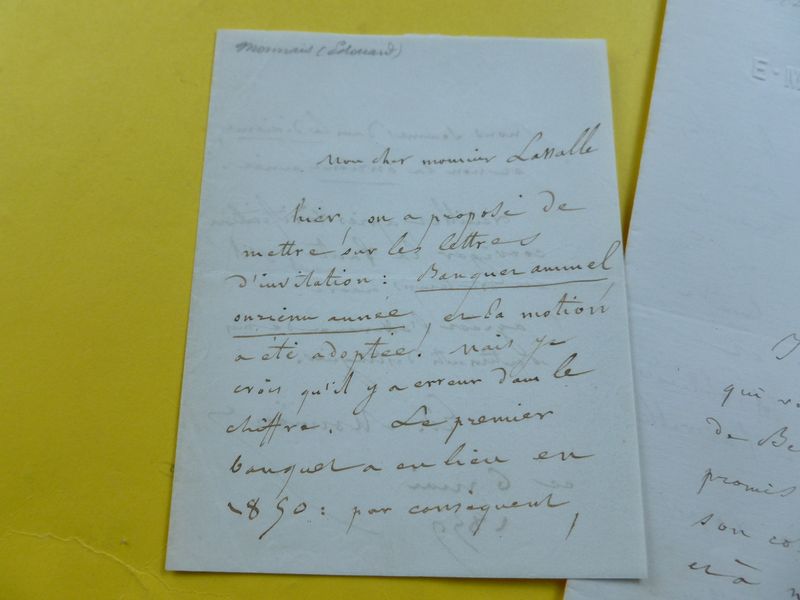 Monnais (Edouard)
Mon cher monsieur Lassalle
hier, on a proposé de
mettre sur les lettres
d'invitation : Banquet annuel
onzième année, et la motion
a été adoptée. Mais je
crois qu'il y a erreur dans le
chiffre. Le premier
banquet a eu lieu en
1850 : par conséquent,
E-
qui
de Be
promis
son co
et à